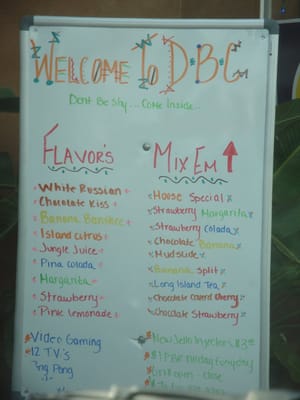 WELCOME TO D·B·C
Dont Be Shy... Come Inside...
FLAVOR'S
White Russian
Chocolate Kiss
Banana Banshee
Island citrus
Jungle Juice
Pina colada
Margarita
Strawberry
Pink lemonade
Video Gaming
12 T.V.'s
Ping Pong
MIX EM
House Special
Strawberry Margarita
Strawberry Colada
Chocolate Banana
Mudslide
Banana Split
Long Island Tea
Chocolate Coverd Cherry
Chocolate Strawberry
New Jello Injectors $3
$1 Everyday
- Close